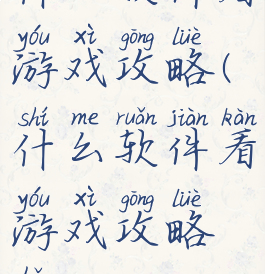 yóu xì gōng lüè
游戏攻略(
shí me ruǎn jiàn kàn
什么软件看
yóu xì gōng lüè
游戏攻略